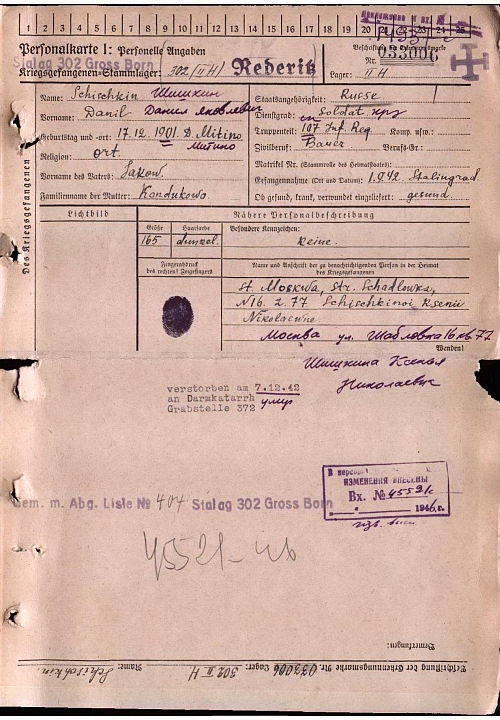 1 2 3 4 5 6 7 8 9 10 11 12 13 14 15 16 17 18 19 20 21 22 23 24 25
Personalkarte I: Personelle Angaben
Beschriftung der Erkennungsmarke
Stalag 302 Gross Born
Nr. 033006
Kriegsgefangenen-Stammlager: 302 (II H) Rederitz
Lager: II H
Des Kriegsgefangenen
Name: Schischkin Шишкин
Staatsangehörigkeit: Russe
Vorname: Danil Данил Яковлевич
Dienstgrad: Soldat кр
Truppenteil: 107 Inf. Reg. Komp. usw.:
Geburtstag und -ort: 17.12.1901. D. Mitino
Митино
Zivilberuf: Bauer Berufs-Gr.:
Religion: ort.
Matrikel Nr. (Stammrolle des Heimatstaates):
Vorname des Vaters: Jakow.
Gefangennahme (Ort und Datum): 1.9.42. Stalingrad
Familienname der Mutter: Kondukowo
Ob gesund, krank, verwundet eingeliefert: gesund.
Lichtbild
Nähere Personalbeschreibung
Größe Haarfarbe Besondere Kennzeichen:
165 dunkel. Keine.
Fingerabdruck
des rechten! Zeigefingers
Name und Anschrift der zu benachrichtigenden Person in der Heimat
des Kriegsgefangenen
St. Moskwa, Str. Schadlowka,
N16. 2. 77 Schischkinoi Ksenii
Nikolaewne
Москва ул. Шабловка 16 кв. 77
Wenden!
Шишкина Ксенья
Николаевна
verstorben am 7.12.42
an Darmkatarrh умер
Grabstelle 372
В персон к.
ИЗМЕНЕНИЯ ВНЕСЕНЫ
Вх. №
1946 г.
Gem. m. Abg. Liste № 404 Stalag 302 Gross Born
Bemerkungen:
Beschriftung der Erkennungsmarke Nr. 033006 Lager: 302 II H Name: Schischkin.